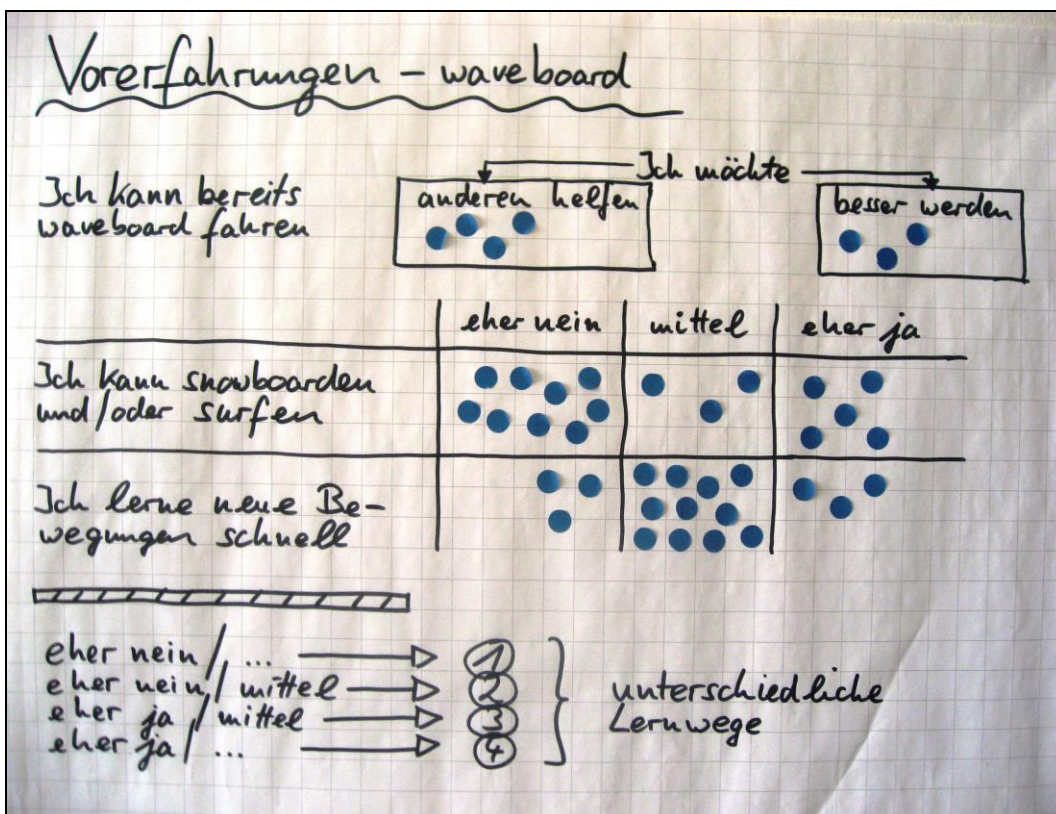 Vorerfahrungen – waveboard
Ich möchte
Ich kann bereits
waveboard fahren
anderen helfen
besser werden
eher nein
mittel
eher ja
Ich kann snowboarden
und/oder surfen
Ich lerne neue Be-
wegungen schnell
eher nein / ...
1
eher nein / mittel
2
eher ja / mittel
3
eher ja / ...
4
unterschiedliche
Lernwege